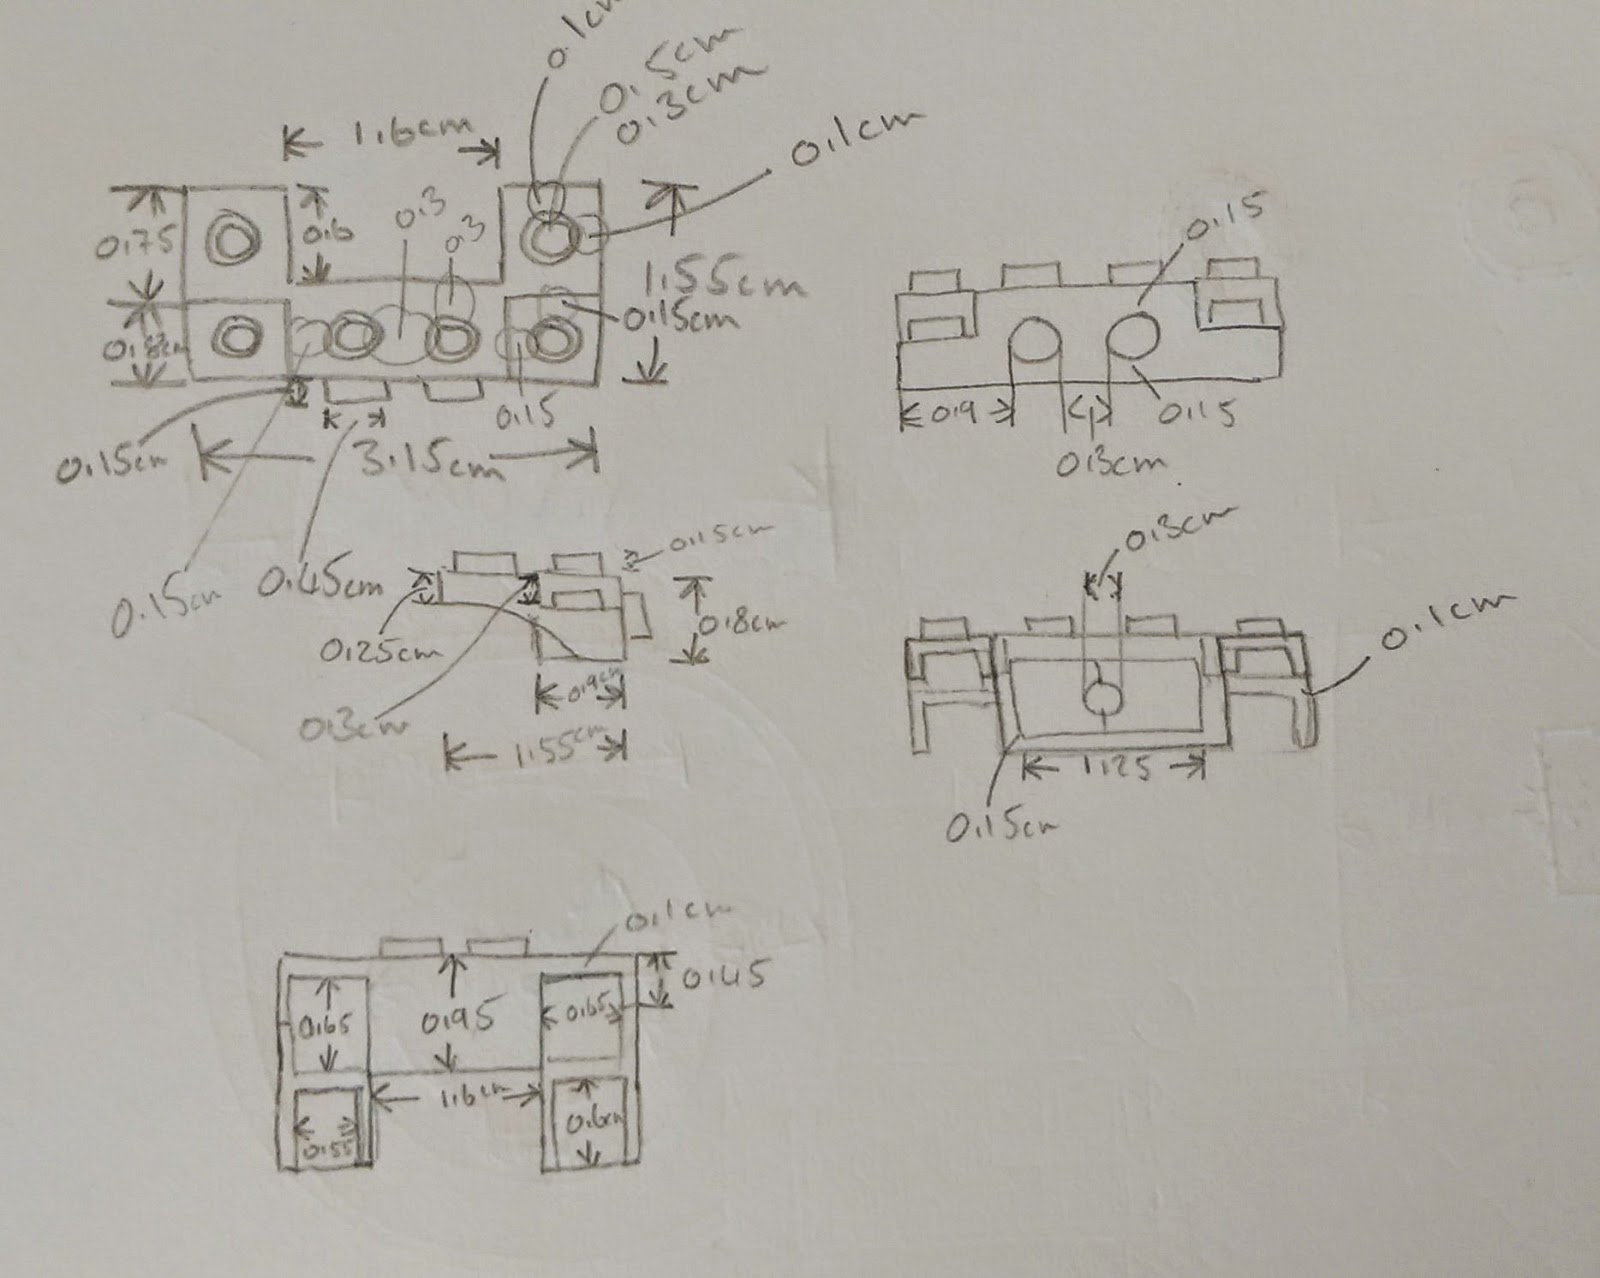 0.1cm
0.5cm
0.3cm
0.1cm
1.6cm
0.75
0.6
0.3
0.3
1.55cm
0.15cm
0.8cm
0.15
0.15cm
3.15cm
0.15cm
0.45cm
0.15
0.9
0.15
0.3cm
0.15cm
0.8cm
0.25cm
0.9cm
0.3cm
1.55cm
0.3cm
0.1cm
1.25
0.15cm
0.1cm
0.45
0.65
0.95
0.65
1.6cm
0.6cm
0.55